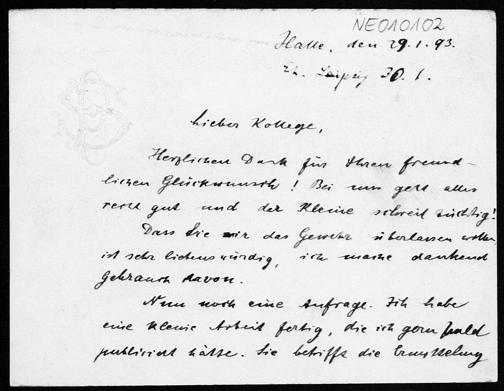 NE010102
Halle, den 29.1.93.
Er. Leipzig 30.1.
Lieber Kollege,
Herzlichen Dank für Ihren freund-
lichen Glückwunsch! Bei uns geht alles
recht gut und der Kleine schreit tüchtig!
Dass Sie mir das Gewehr überlassen wollen
ist sehr liebenswürdig, ich mache dankend
Gebrauch davon.
Nun noch eine Anfrage. Ich habe
eine kleine Arbeit fertig, die ich gern bald
publiciert hätte. Sie betrifft die Ermittelung